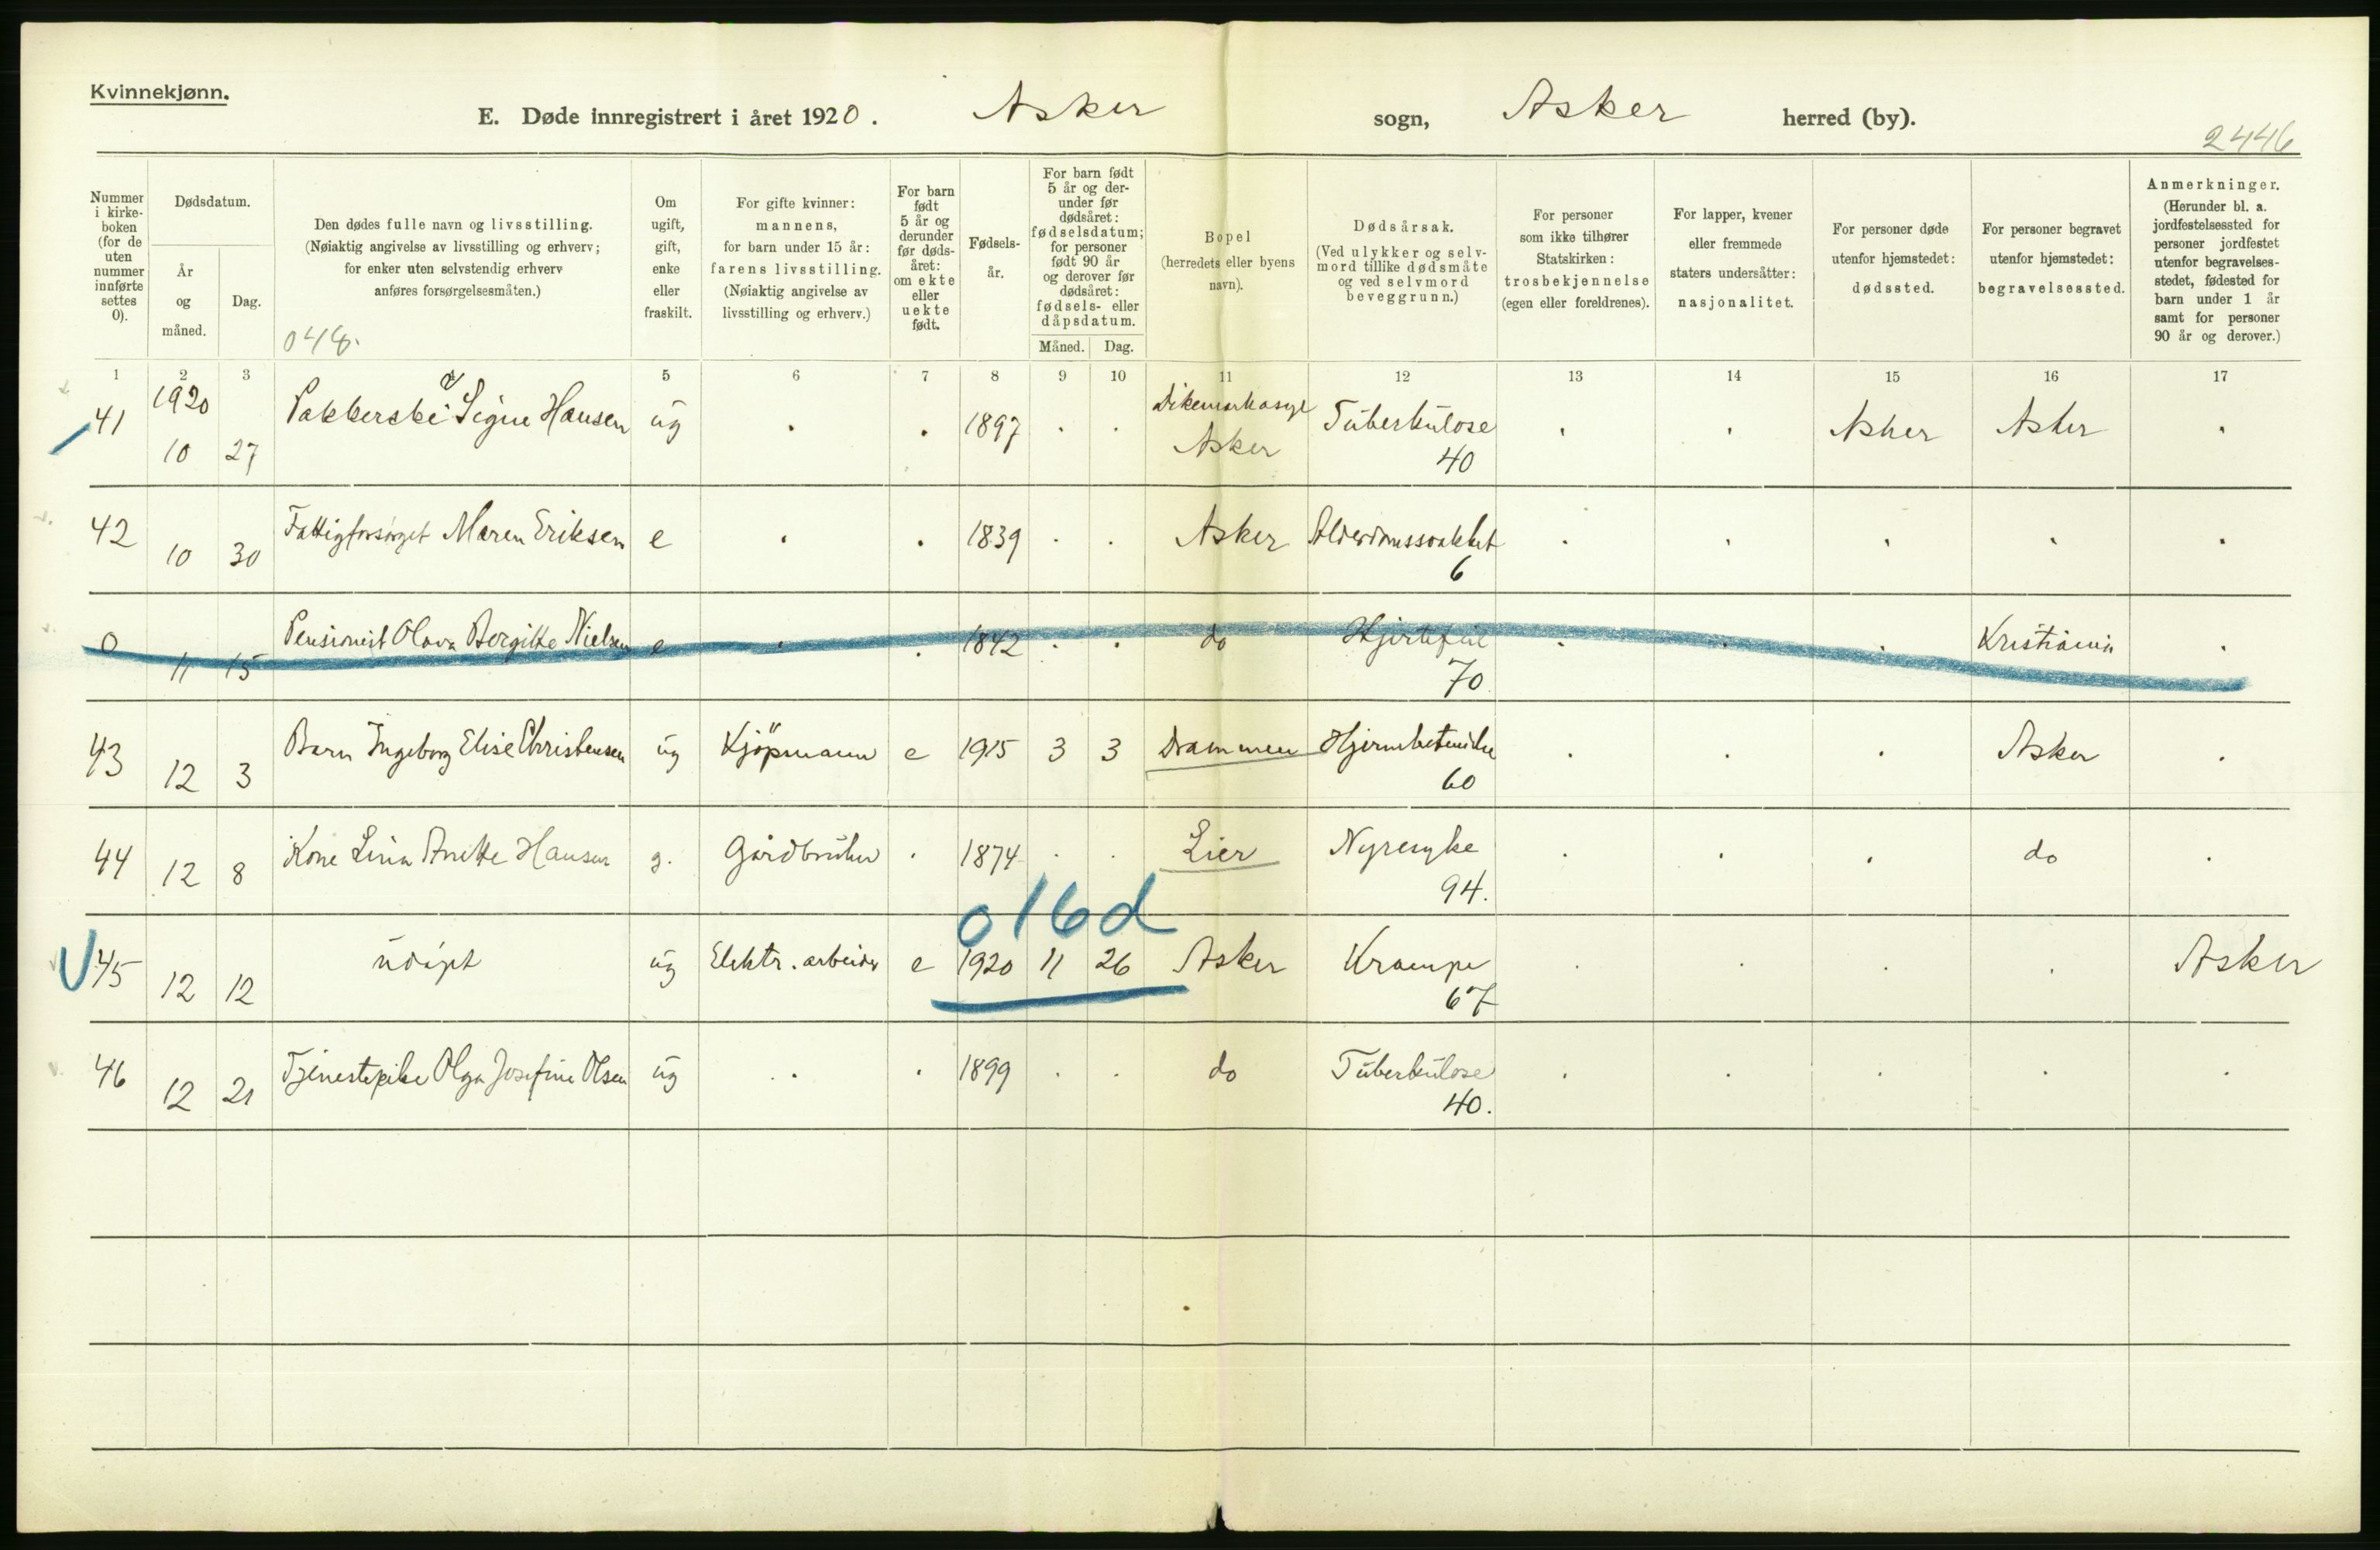 Kvinnekjønn.
E. Døde innregistrert i året 1920. Asker sogn, Asker herred (by).
2446
Nummer i kirke-boken (for de uten nummer innførte settes 0).
Dødsdatum.
År og måned.
Dag.
Den dødes fulle navn og livsstilling.
(Nøiaktig angivelse av livsstilling og erhverv;
for enker uten selvstendig erhverv
anføres forsørgelsesmåten.)
Om ugift, gift, enke eller fraskilt.
For gifte kvinner:
mannens,
for barn under 15 år:
farens livsstilling.
(Nøiaktig angivelse av
livsstilling og erhverv.)
For barn født 5 år og derunder før døds-året: om ekte eller uekte født.
Fødsels-år.
For barn født
5 år og der-
under før
dødsåret:
fødselsdatum;
for personer
født 90 år
og derover før
dødsåret:
fødsels- eller
dåpsdatum.
Måned. Dag.
Bopel
(herredets eller byens
navn).
Dødsårsak.
(Ved ulykker og selv-
mord tillike dødsmåte
og ved selvmord
beveggrunn.)
For personer
som ikke tilhører
Statskirken:
trosbekjennelse
(egen eller foreldrenes).
For lapper, kvener
eller fremmede
staters undersåtter:
nasjonalitet.
For personer døde
utenfor hjemstedet:
dødssted.
For personer begravet
utenfor hjemstedet:
begravelsessted.
Anmerkninger.
(Herunder bl. a.
jordfestelsessted for
personer jordfestet
utenfor begravelses-
stedet, fødested for
barn under 1 år
samt for personer
90 år og derover.)
1 2 3 5 6 7 8 9 10 11 12 13 14 15 16 17
41 1920 10 27 Signe Hansen ug . . 1897 . . Dikemarkasyl Asker Tuberkulose 40 . . Asker Asker .
42 10 30 Fattigforsørget Maren Eriksen e . . 1839 . . Asker Alderdomssvakket 6 . . . . .
0 11 15 Pensionist Olava Bergitte Nielsen e . . 1842 . . do Hjertefeil 70 . . . Kristiania .
43 12 3 Barn Ingeborg Elise Christensen ug Kjöpmann e 1915 3 3 Drammen 60 . . . Asker .
44 12 8 Kone Lina Anette Hansen g. Gårdbruker . 1874 . . Lier Nyresyke 94. . . . do .
016d
45 12 12 udöpt ug Elektr. arbeider e 1920 11 26 Asker Krampe 67 . . . . Asker
46 12 21 Tjenestepike Olga Josefine Olsen ug . . 1899 . . do Tuberkulose 40. . . . . .